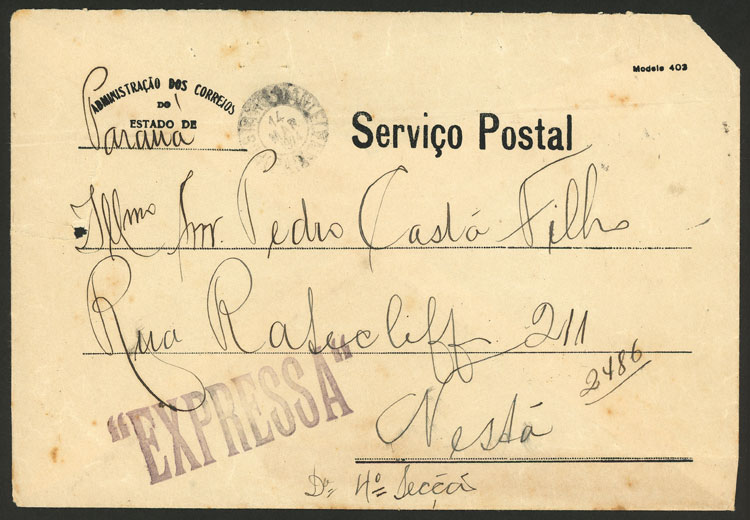 Modelo 403
ADMINISTRAÇÃO DOS CORREIOS
DO
ESTADO DE
Paraná
Serviço Postal
Illmo Snr. Pedro Castá Filho
Rua Ratecliff 211
2486
"EXPRESSA"
Nestá
Da 4a Secçã